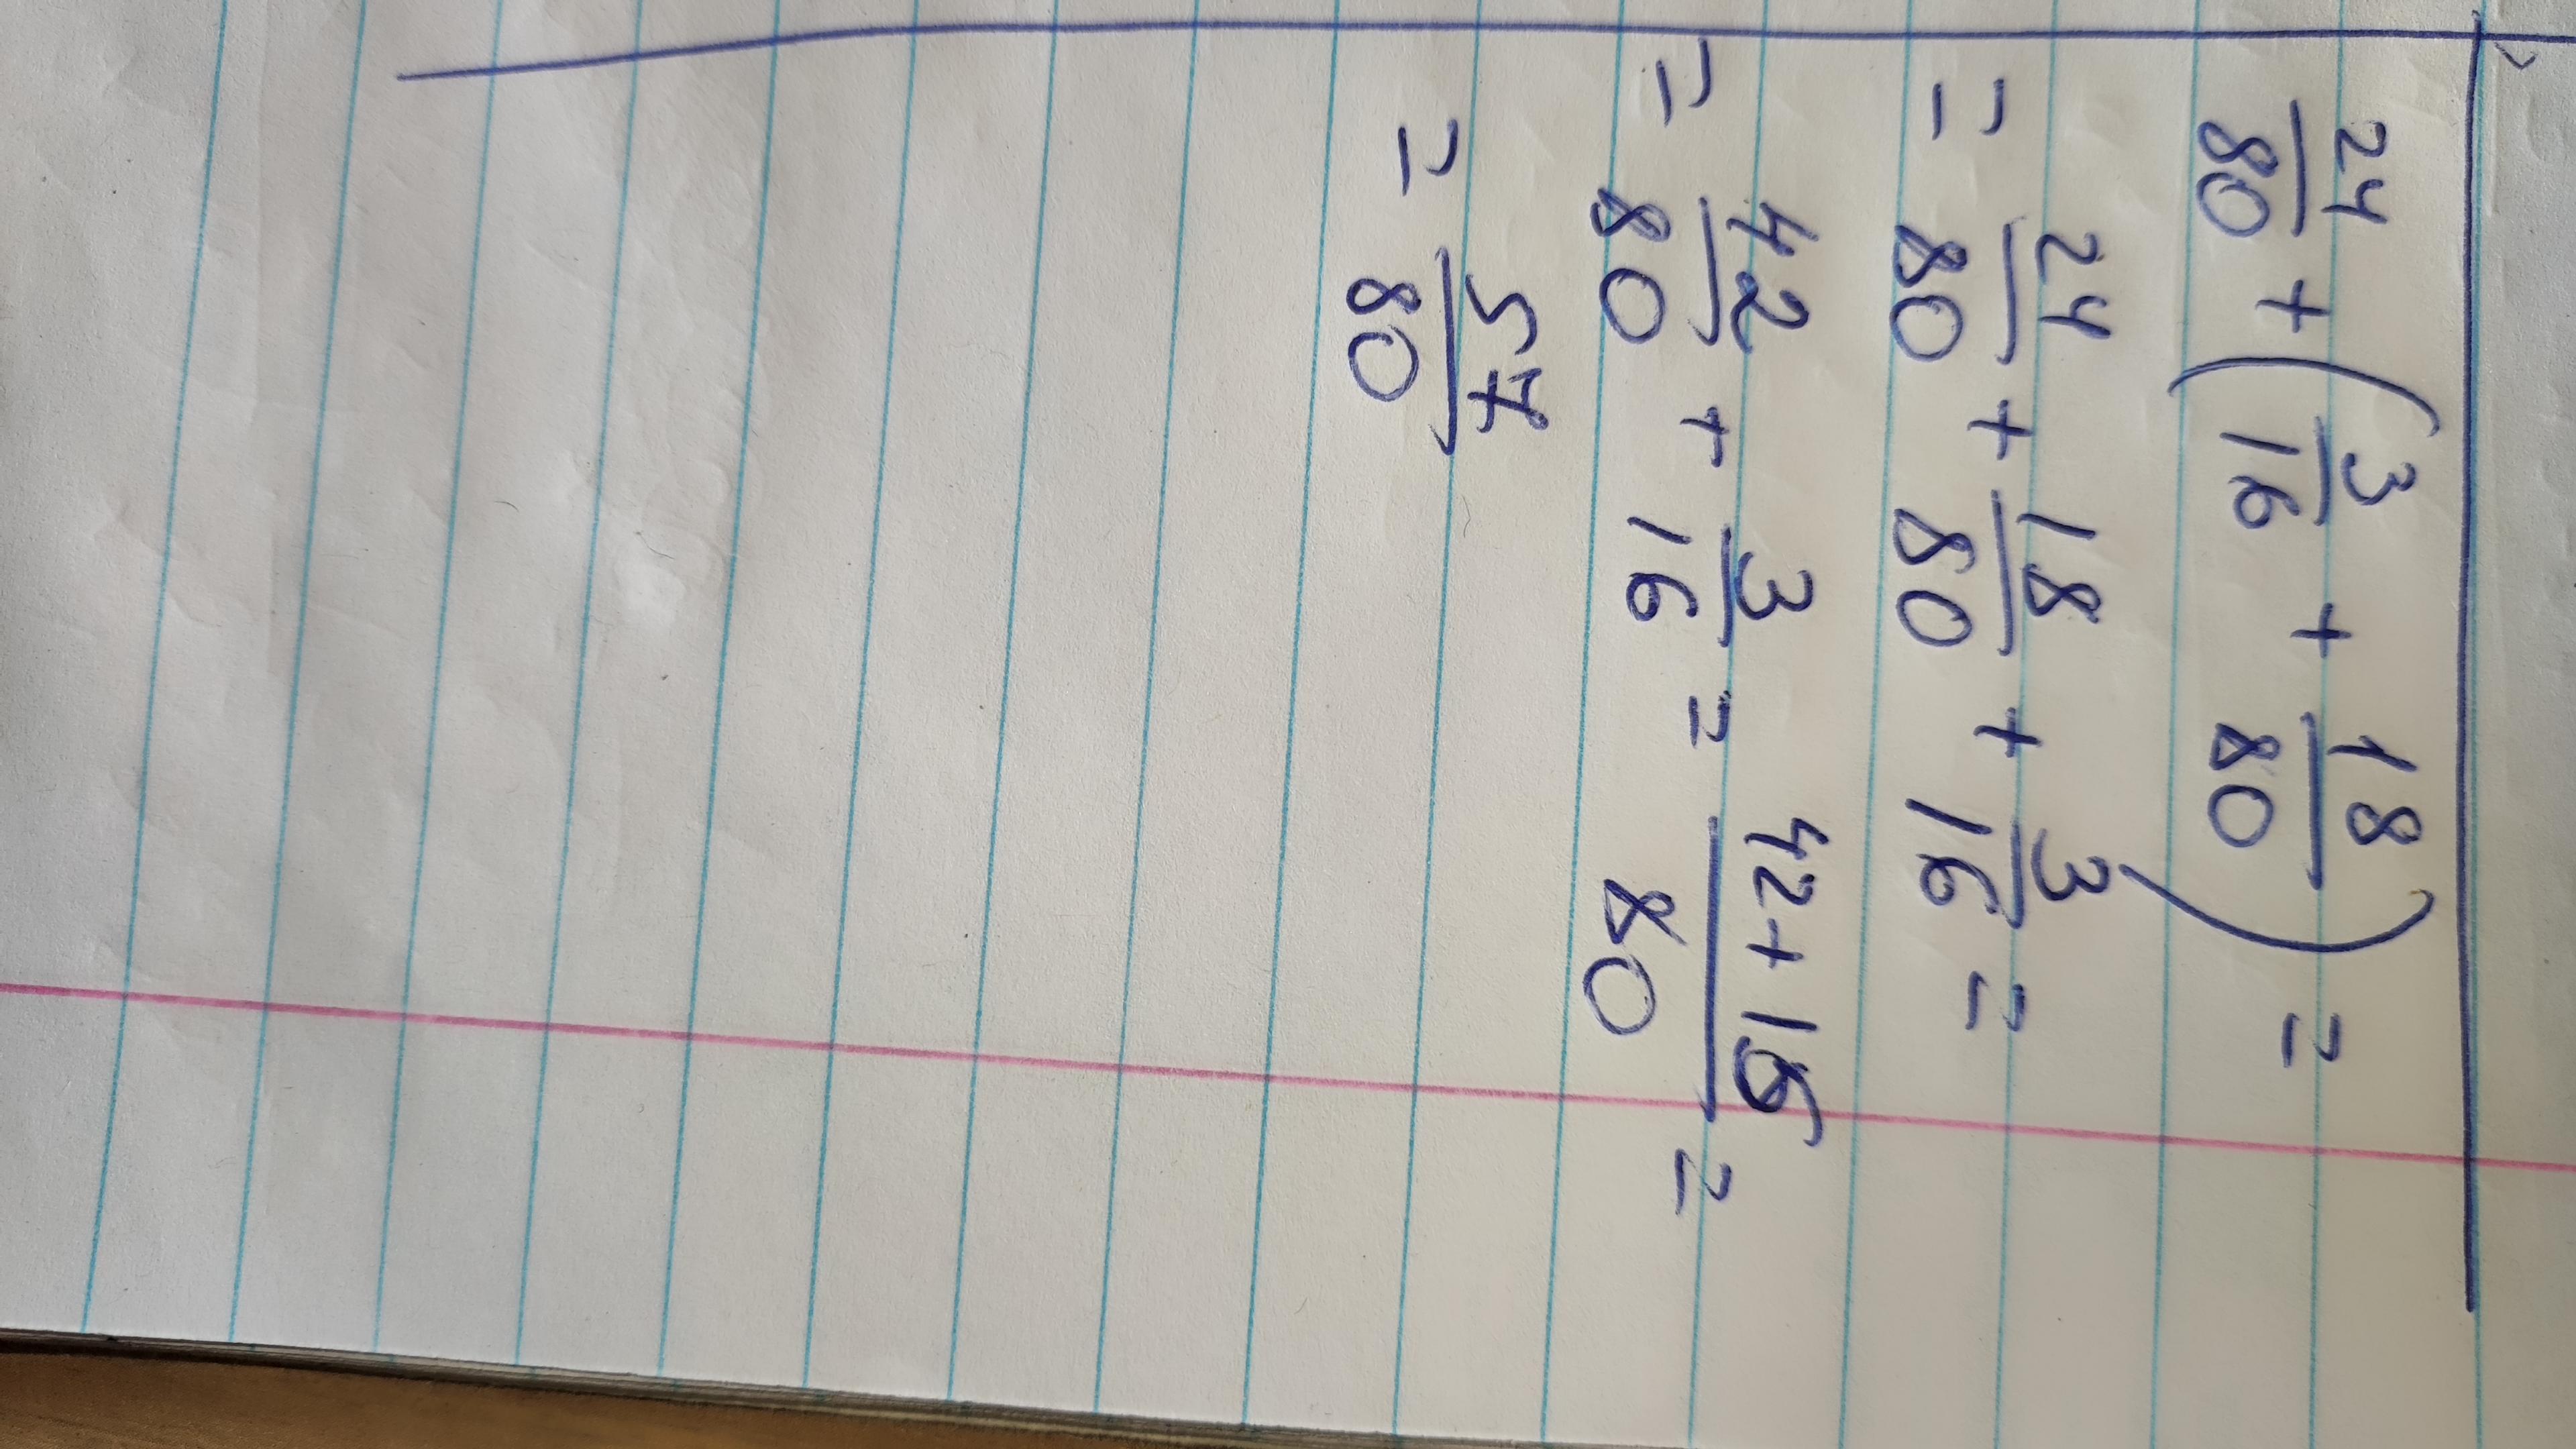 24/80 + (3/16 + 18/80) =
= 24/80 + 18/80 + 3/16 =
= 42/80 + 3/16 = 42+15/80 =
= 57/80